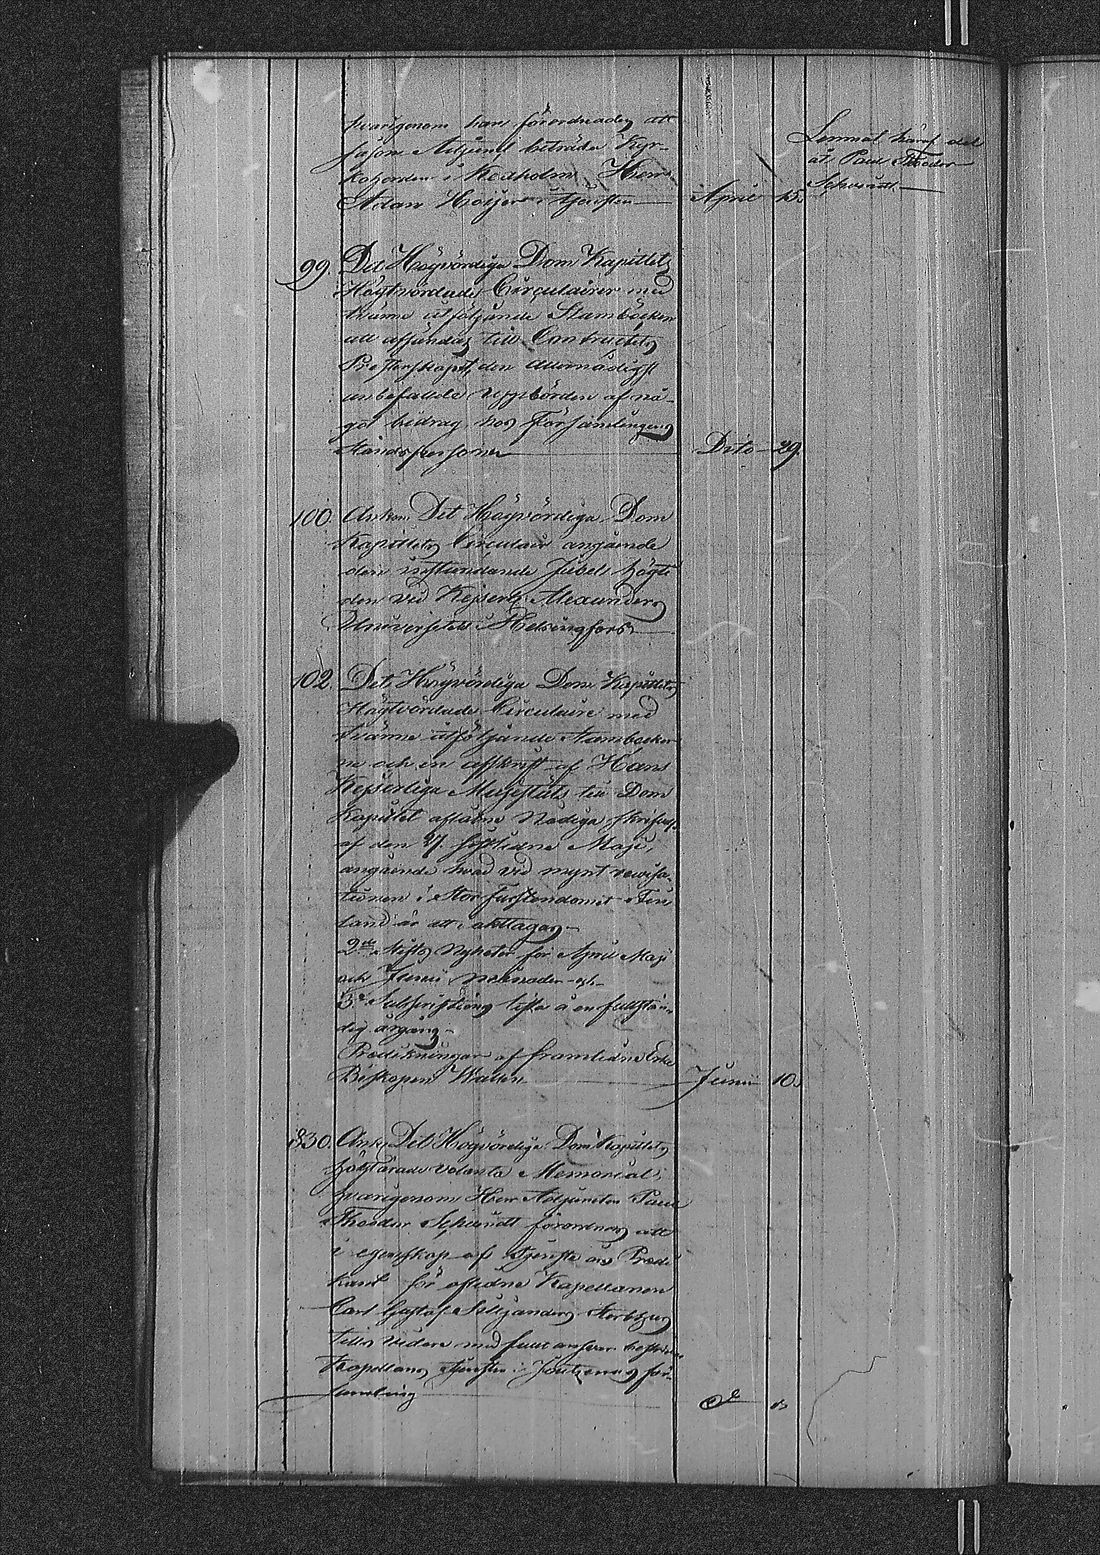 hvarigenom han förordnades att
såsom Adjunct biträda Kyr-
koherden i Kexholm Herr
Adam Hoijer i tjensten April 15.
Lemnat häraf del
åt Paul Theodor
Schwartt
99. Det Högvördiga Dom Kapitlets
Högtvördade Circulairer med
thärne åtföljande Stamböcker
att afsändas till Contractets
Presterskapet, den allernådigst
anbefallde uppbörden af nå-
got bidrag hos Församlingens
Ståndspersoner Dito 29.
100. Ankom Det Högvördiga Dom
Kapitlets Circulair angående
den instundande Jubel högti
den vid Kejserl. Alexanders
Universitetet i Helsingfors
102. Det Högvördiga Dom Kapitlets
Högtvördade Circulaire med
thärne åtföljande Stamböcker
ne och en afskrift af Hans
Kejserliga Majestäts till Dom
Kapitlet aflåtne Nådiga skrifvelse
af den 27 sistledne Maji,
angående hvad vid mynt
i Stor Furstendömet Fin
land är att iakttagas
2. Stifts Nyheter för April Maji
och Junii månader
3. Subscriptions lista å en fullstän-
dig årgång
Predikningar af framledne Erke
Biskopen Junii 10.
1830. Ank. Det Högvördiga Dom Kapitlets
högtärade Memorial,
hvarigenom Herr Adjuncten Paul
Theodor Schwartt förordnas att
i egenskap af tjenste års Predi
kant för aflidne Kapellanen
Carl Gustaf Sterbhus
tills vidare med fullt ansvar bestrida
Kapellans tjensten i Joutsenos för-
samling d:o